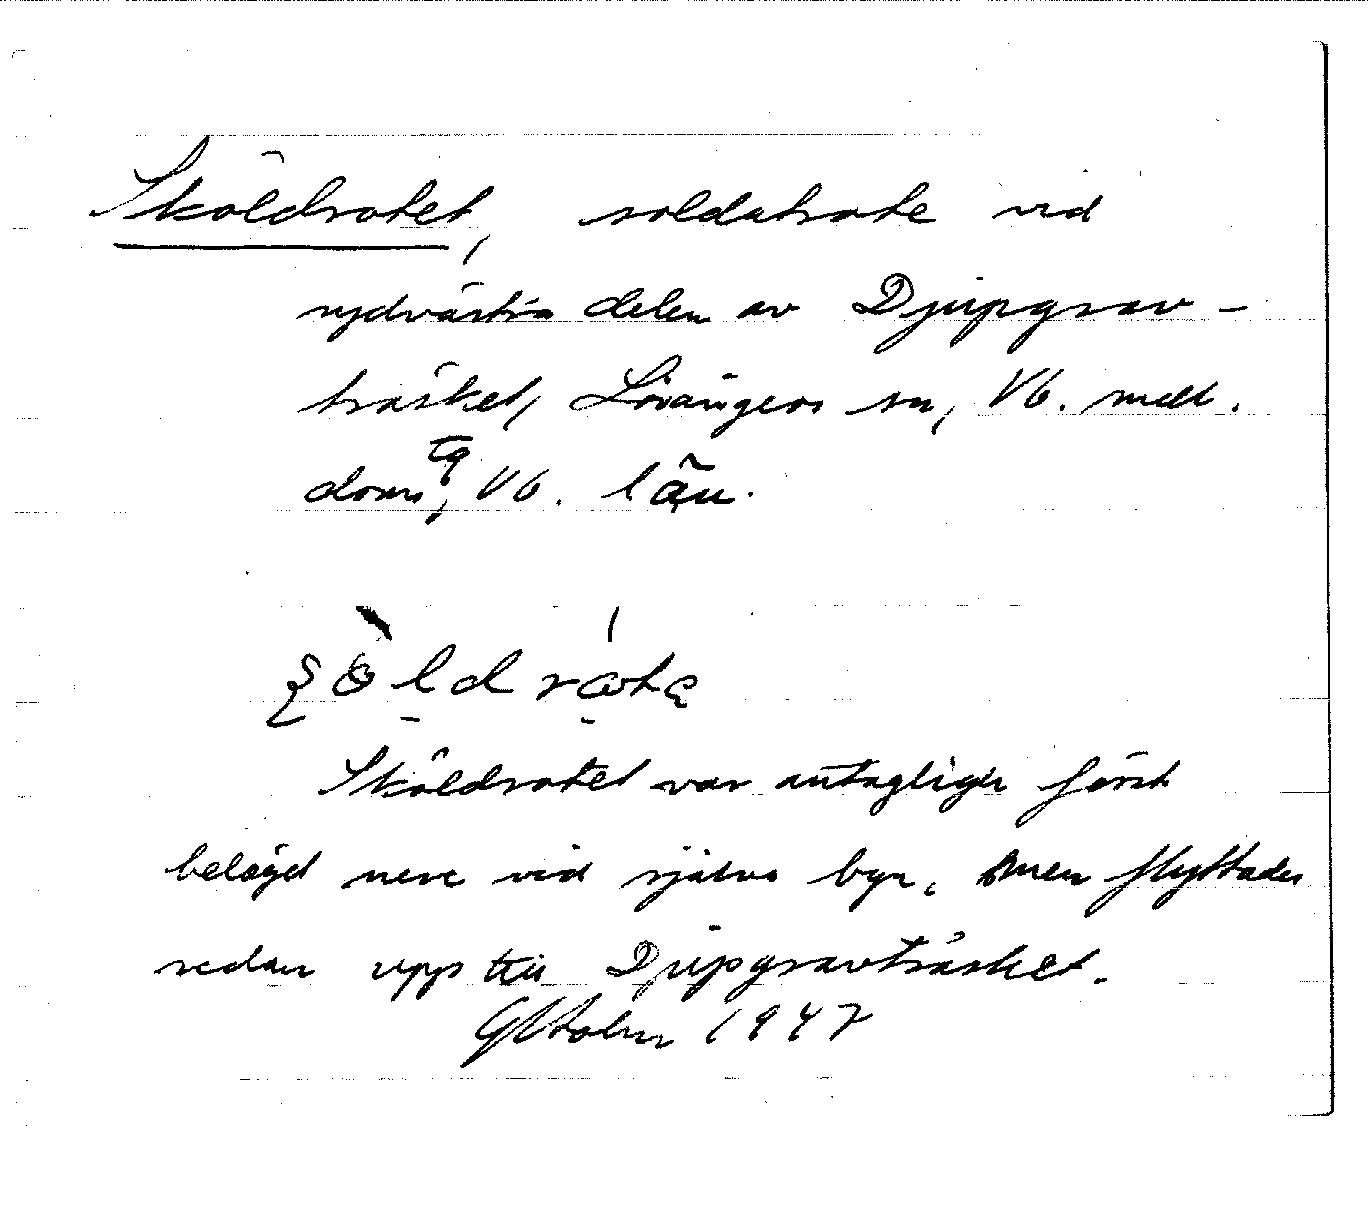 Sköldrotet, soldatrote vid
sydvästra delen av Djupgrav-
träsket, Lövångers sn, Vb. mell.
doms tg, Vb. län.
Sköldrotet var antagligen först
belägd nere vid själva byn, men flyttades
sedan upp till Djupgravträsket.
Holm 1947